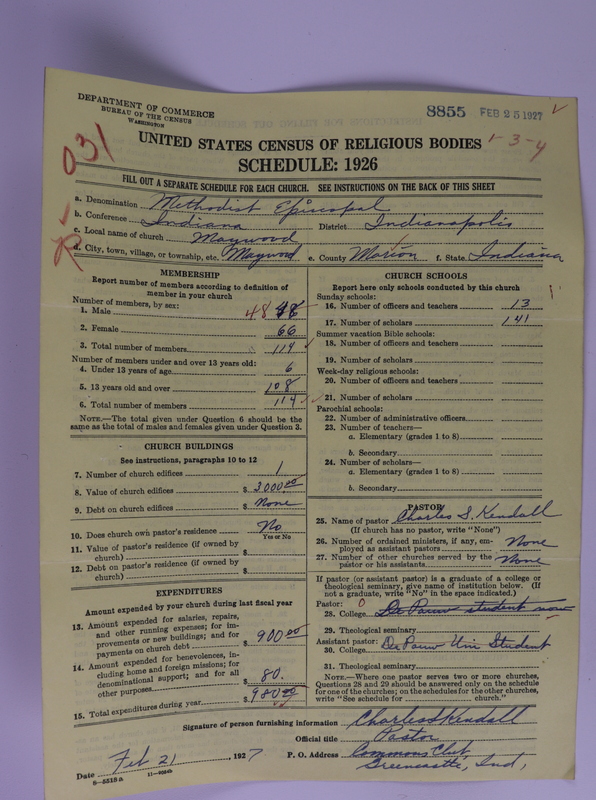 DEPARTMENT OF COMMERCE
BUREAU OF THE CENSUS
WASHINGTON
8855 FEB 25 1927
031
UNITED STATES CENSUS OF RELIGIOUS BODIES 1-3-4
SCHEDULE: 1926
FILL OUT A SEPARATE SCHEDULE FOR EACH CHURCH. SEE INSTRUCTIONS ON THE BACK OF THIS SHEET
a. Denomination Methodist Episcopal
b. Conference Indiana District Indianapolis
c. Local name of church Maywood
R
d. City, town, village, or township, etc. Maywood e. County Marion f. State Indiana
MEMBERSHIP
Report number of members according to definition of member in your church
Number of members, by sex:
1. Male 48 48
2. Female 66
3. Total number of members 114
Number of members under and over 13 years old:
4. Under 13 years of age 6
5. 13 years old and over 108
6. Total number of members 114
NOTE.—The total given under Question 6 should be the
same as the total of males and females given under Question 3.
CHURCH BUILDINGS
See instructions, paragraphs 10 to 12
7. Number of church edifices 1
8. Value of church edifices $ 3000.00
9. Debt on church edifices $ None
10. Does church own pastor's residence No
Yes or No
11. Value of pastor's residence (if owned by
church) $
12. Debt on pastor's residence (if owned by
church) $
EXPENDITURES
Amount expended by your church during last fiscal year
13. Amount expended for salaries, repairs,
and other running expenses; for im-
provements or new buildings; and for
payments on church debt $ 900.00
14. Amount expended for benevolences, in-
cluding home and foreign missions; for
denominational support; and for all
other purposes $ 80.
15. Total expenditures during year $ 980.00
CHURCH SCHOOLS
Report here only schools conducted by this church
Sunday schools:
16. Number of officers and teachers 13
17. Number of scholars 141
Summer vacation Bible schools:
18. Number of officers and teachers
19. Number of scholars
Week-day religious schools:
20. Number of officers and teachers
21. Number of scholars
Parochial schools:
22. Number of administrative officers
23. Number of teachers—
a. Elementary (grades 1 to 8)
b. Secondary
24. Number of scholars—
a. Elementary (grades 1 to 8)
b. Secondary
PASTOR
25. Name of pastor Charles S. Kendall
(If church has no pastor, write "None")
26. Number of ordained ministers, if any, em-
ployed as assistant pastors None
27. Number of other churches served by the
pastor or his assistants None
If pastor (or assistant pastor) is a graduate of a college or
theological seminary, give name of institution below. (If
not a graduate, write "No" in the space indicated.)
Pastor: 0
28. College De Pauw student now
29. Theological seminary
Assistant pastor:
30. College De Pauw Uni Student
31. Theological seminary
NOTE.—Where one pastor serves two or more churches,
Questions 28 and 29 should be answered only on the schedule
for one of the churches; on the schedules for the other churches,
write "See schedule for church."
Signature of person furnishing information Charles S Kendall
Official title Pastor
Date Feb 21, 1927 P. O. Address Commons Club
Greencastle, Ind,
8—5518 a